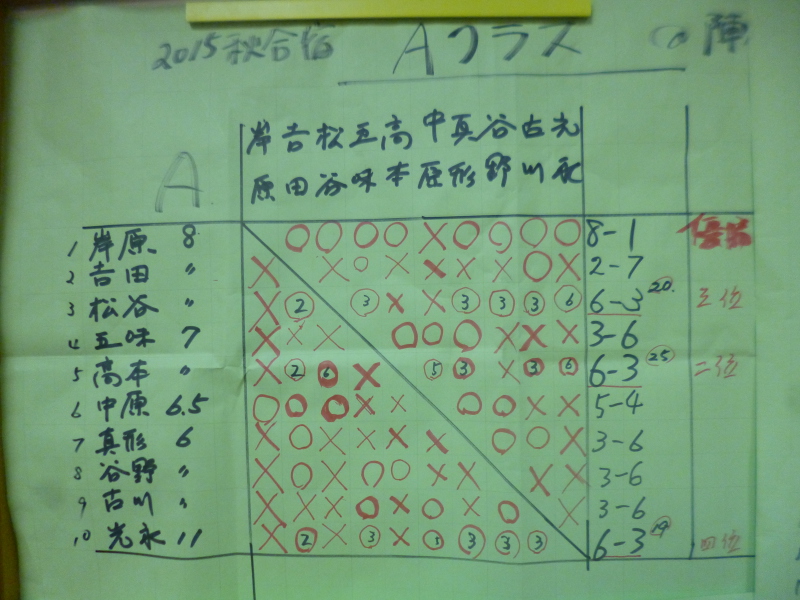 2015秋合宿 Aクラス の陣
A
岸原 吉田 松谷 五味 高本 中原 真形 谷野 古川 光永
1 岸原 8 ○ ○ ○ ○ × ○ ○ ○ ○ 8-1 優勝
2 吉田 〃 × × ○ × × × × ○ × 2-7
3 松谷 〃 × ② ③ × × ③ ③ ③ ⑥ 6-3 ⑳ 三位
4 五味 7 × × × ○ ○ ○ × × × 3-6
5 高本 〃 × ② ⑥ × ⑤ ③ × ③ ⑥ 6-3 ㉕ 二位
6 中原 6.5 ○ ○ ○ × × ○ ○ × × 5-4
7 真形 6 × ○ × × × × ○ ○ × 3-6
8 谷野 〃 × ○ × ○ ○ × × × × 3-6
9 古川 〃 × × × ○ × ○ × ○ × 3-6
10 光永 11 × ② × ③ × ⑤ ③ ③ ③ 6-3 ⑲ 四位